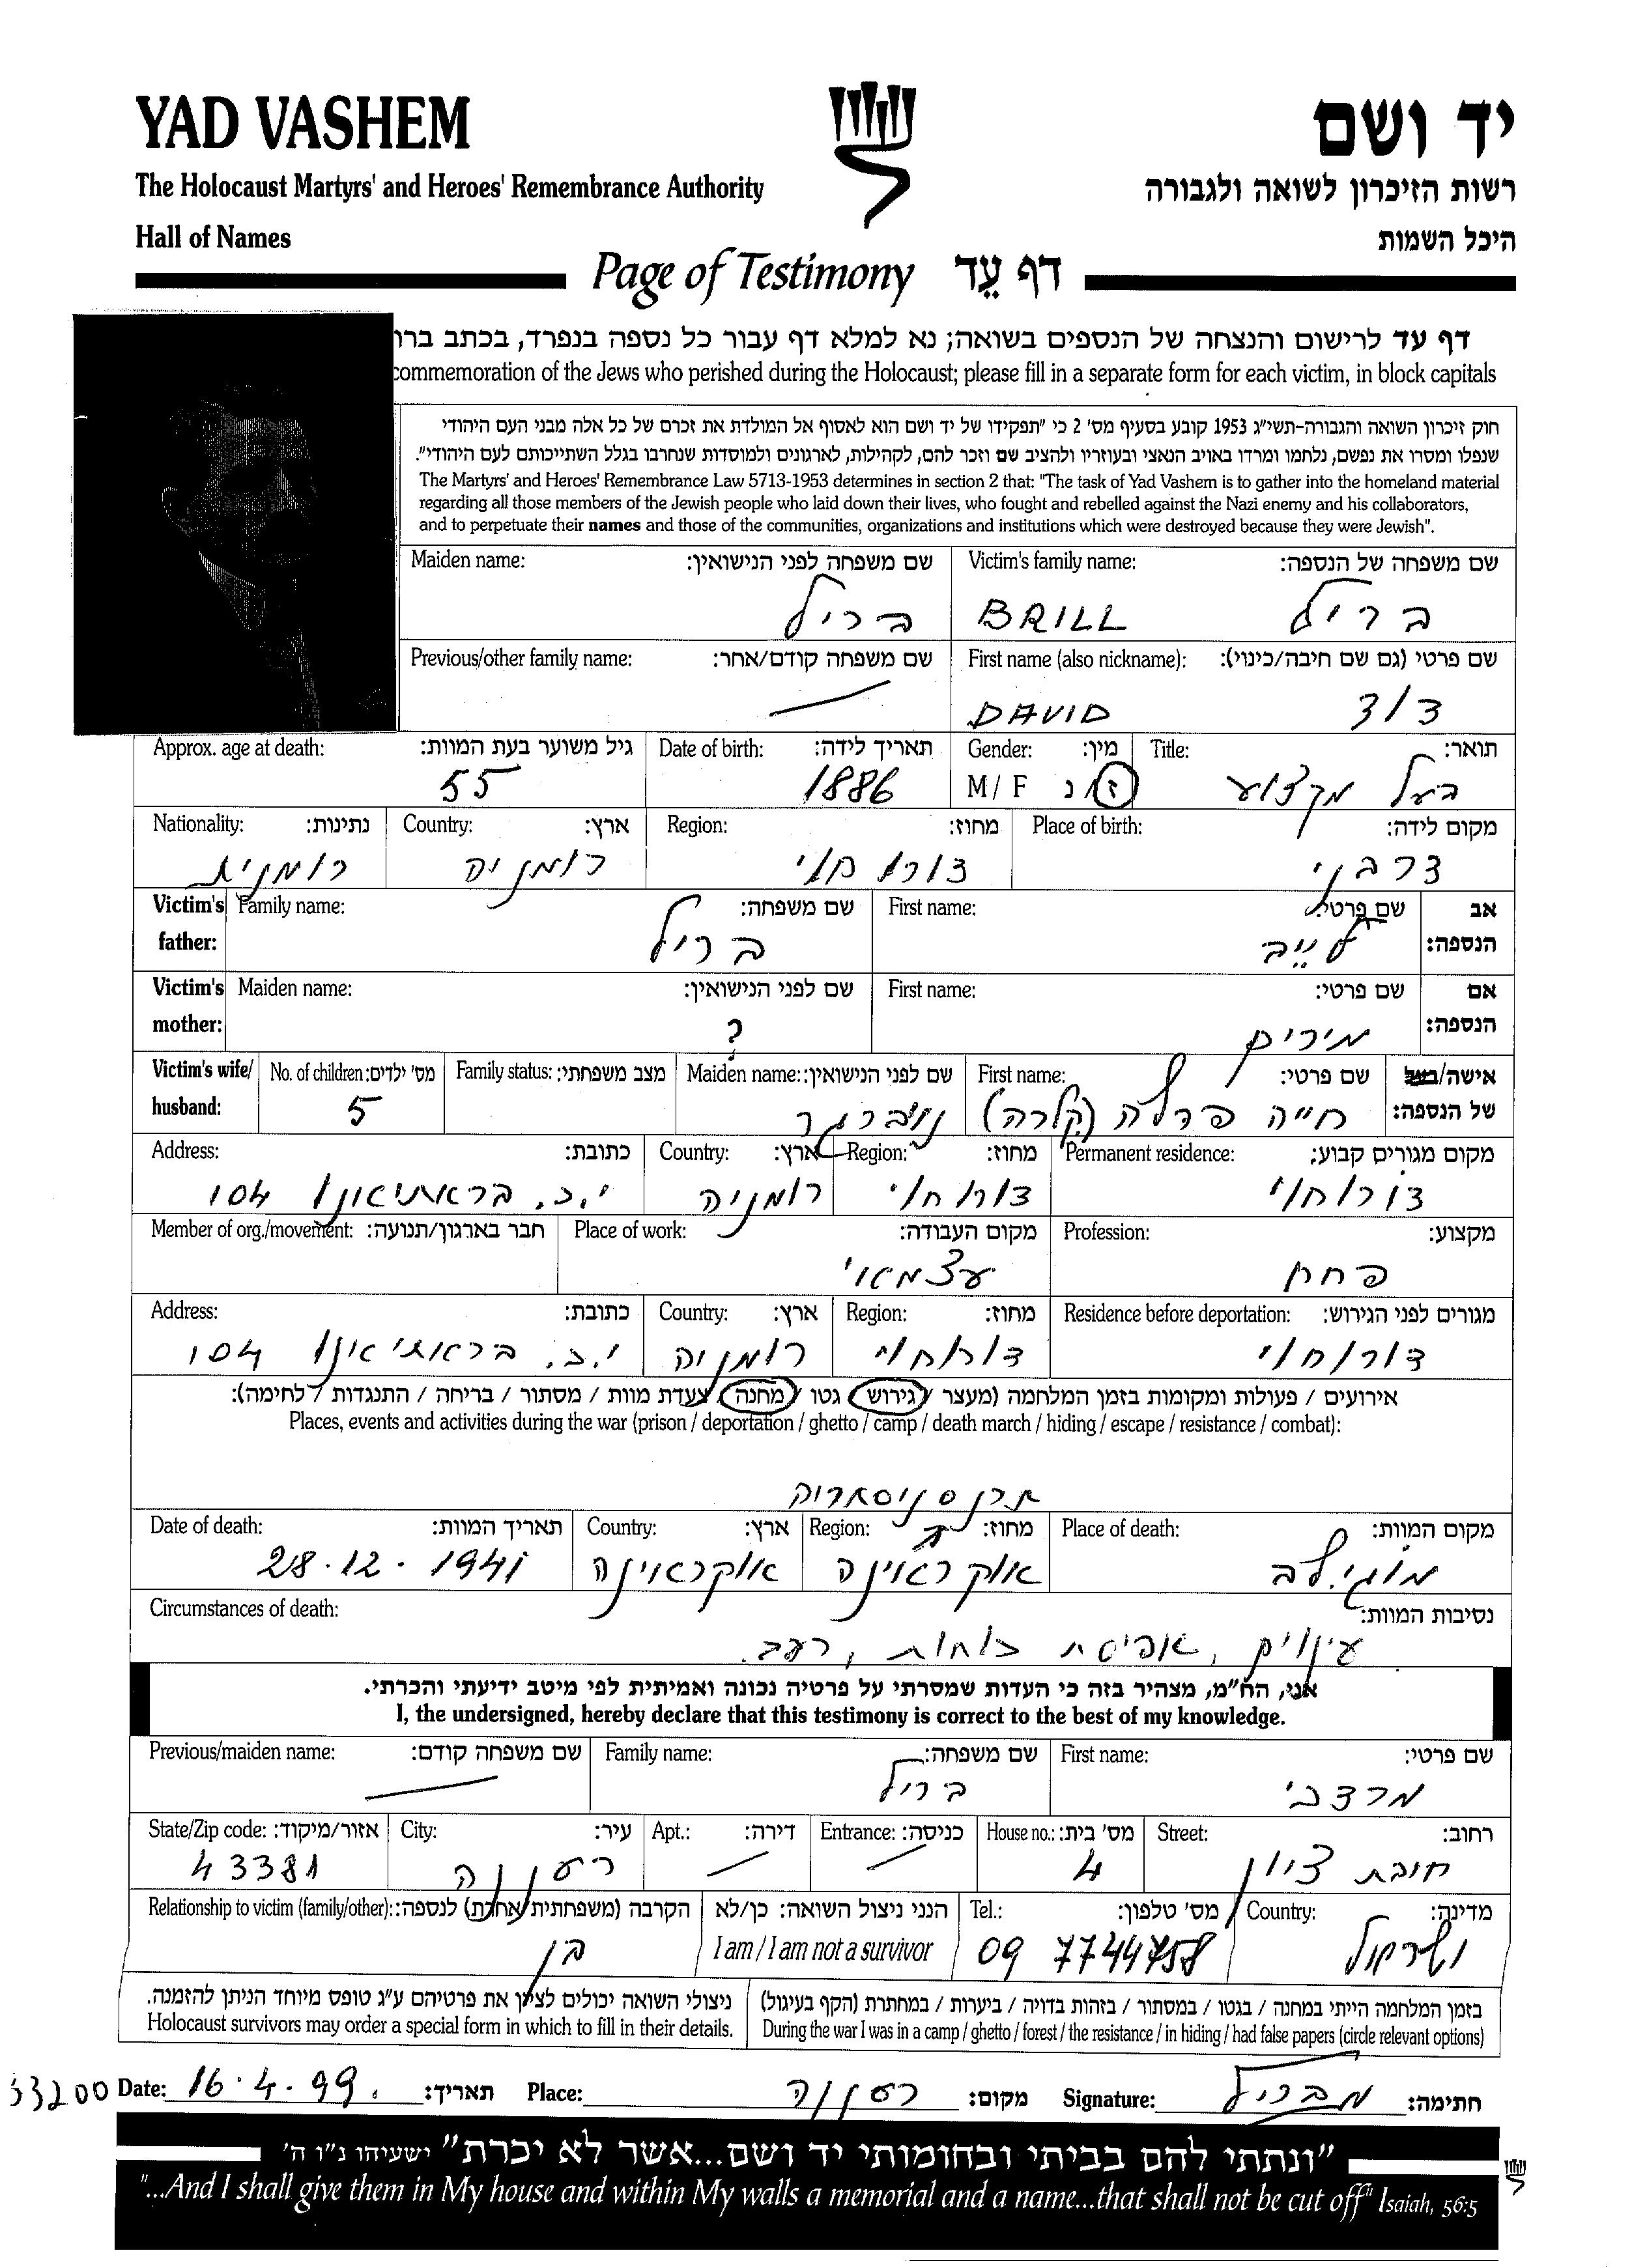 YAD VASHEM
יד ושם
The Holocaust Martyrs' and Heroes' Remembrance Authority
רשות הזיכרון לשואה ולגבורה
Hall of Names
היכל השמות
Page of Testimony דף עֵד
דף עד לרישום והנצחה של הנספים בשואה; נא למלא דף עבור כל נספה בנפרד, בכתב ברו
commemoration of the Jews who perished during the Holocaust; please fill in a separate form for each victim, in block capitals
חוק זיכרון השואה והגבורה-תשי"ג 1953 קובע בסעיף מס' 2 כי "תפקידו של יד ושם הוא לאסוף אל המולדת את זכרם של כל אלה מבני העם היהודי
שנפלו ומסרו את נפשם, נלחמו ומרדו באויב הנאצי ובעוזריו ולהציב שם וזכר להם, לקהילות, לארגונים ולמוסדות שנחרבו בגלל השתייכותם לעם היהודי".
The Martyrs' and Heroes' Remembrance Law 5713-1953 determines in section 2 that: "The task of Yad Vashem is to gather into the homeland material
regarding all those members of the Jewish people who laid down their lives, who fought and rebelled against the Nazi enemy and his collaborators,
and to perpetuate their names and those of the communities, organizations and institutions which were destroyed because they were Jewish".
Maiden name: שם משפחה לפני הנישואין: Victim's family name: שם משפחה של הנספה:
בריל BRILL בריל
Previous/other family name: שם משפחה קודם/אחר: First name (also nickname): שם פרטי (גם שם חיבה/כינוי):
DAVID דוד
Approx. age at death: גיל משוער בעת המוות: Date of birth: תאריך לידה: Gender: מין: Title: תואר:
55 1886 M/ F ז/נ בעל מקצוע
Nationality: נתינות: Country: ארץ: Region: מחוז: Place of birth: מקום לידה:
רומנית רומניה דורוחוי דרבני
Victim's father: Family name: שם משפחה: First name: שם פרטי: אב הנספה:
בריל לייב
Victim's mother: Maiden name: שם לפני הנישואין: First name: שם פרטי: אם הנספה:
? מירים
Victim's wife/ husband: No. of children: מס' ילדים: Family status: מצב משפחתי: Maiden name: שם לפני הנישואין: First name: שם פרטי: אישה/בעל של הנספה:
5 נויברגר חייה פרלה (קלרה)
Address: כתובת: Country: ארץ: Region: מחוז: Permanent residence: מקום מגורים קבוע:
י.כ. בראתיאנו 104 רומניה דורוחוי דורוחוי
Member of org./movement: חבר בארגון/תנועה: Place of work: מקום העבודה: Profession: מקצוע:
עצמאוי פחח
Address: כתובת: Country: ארץ: Region: מחוז: Residence before deportation: מגורים לפני הגירוש:
י.כ. בראתיאנו 104 רומניה דורוחוי דורוחוי
אירועים / פעולות ומקומות בזמן המלחמה (מעצר / גירוש / גטו / מחנה / צעדת מוות / מסתור / בריחה / התנגדות / לחימה):
Places, events and activities during the war (prison / deportation / ghetto / camp / death march / hiding / escape / resistance / combat):
טרנסניסטריה
Date of death: תאריך המוות: Country: ארץ: Region: מחוז: Place of death: מקום המוות:
28.12.1941 אוקראינה אוקראינה מוגילב
Circumstances of death: נסיבות המוות:
עינויים, אפיסת כוחות, רעב.
אני, הח"מ, מצהיר בזה כי העדות שמסרתי על פרטיה נכונה ואמיתית לפי מיטב ידיעתי והכרתי.
I, the undersigned, hereby declare that this testimony is correct to the best of my knowledge.
Previous/maiden name: שם משפחה קודם: Family name: שם משפחה: First name: שם פרטי:
בריל מרדכי
State/Zip code: אזור/מיקוד: City: עיר: Apt.: דירה: Entrance: כניסה: House no.: מס' בית: Street: רחוב:
43381 רעננה 4 חובת ציון
Relationship to victim (family/other): הקרבה (משפחתית/אחרת) לנספה: הנני ניצול השואה: כן/לא Tel.: מס' טלפון: Country: מדינה:
בן I am / I am not a survivor 09 7744758 ישראל
ניצולי השואה יכולים לציין את פרטיהם ע"ג טופס מיוחד הניתן להזמנה. בזמן המלחמה הייתי במחנה / בגטו / במסתור / בזהות בדויה / ביערות / במחתרת (הקף בעיגול)
Holocaust survivors may order a special form in which to fill in their details. During the war I was in a camp / ghetto / forest / the resistance / in hiding / had false papers (circle relevant options)
53200 Date: 16.4.99. תאריך: Place: רעננה מקום: Signature: מ בריל חתימה:
"ונתתי להם בביתי ובחומותי יד ושם...אשר לא יכרת" ישעיהו נ"ו ה'
"...And I shall give them in My house and within My walls a memorial and a name...that shall not be cut off" Isaiah, 56:5